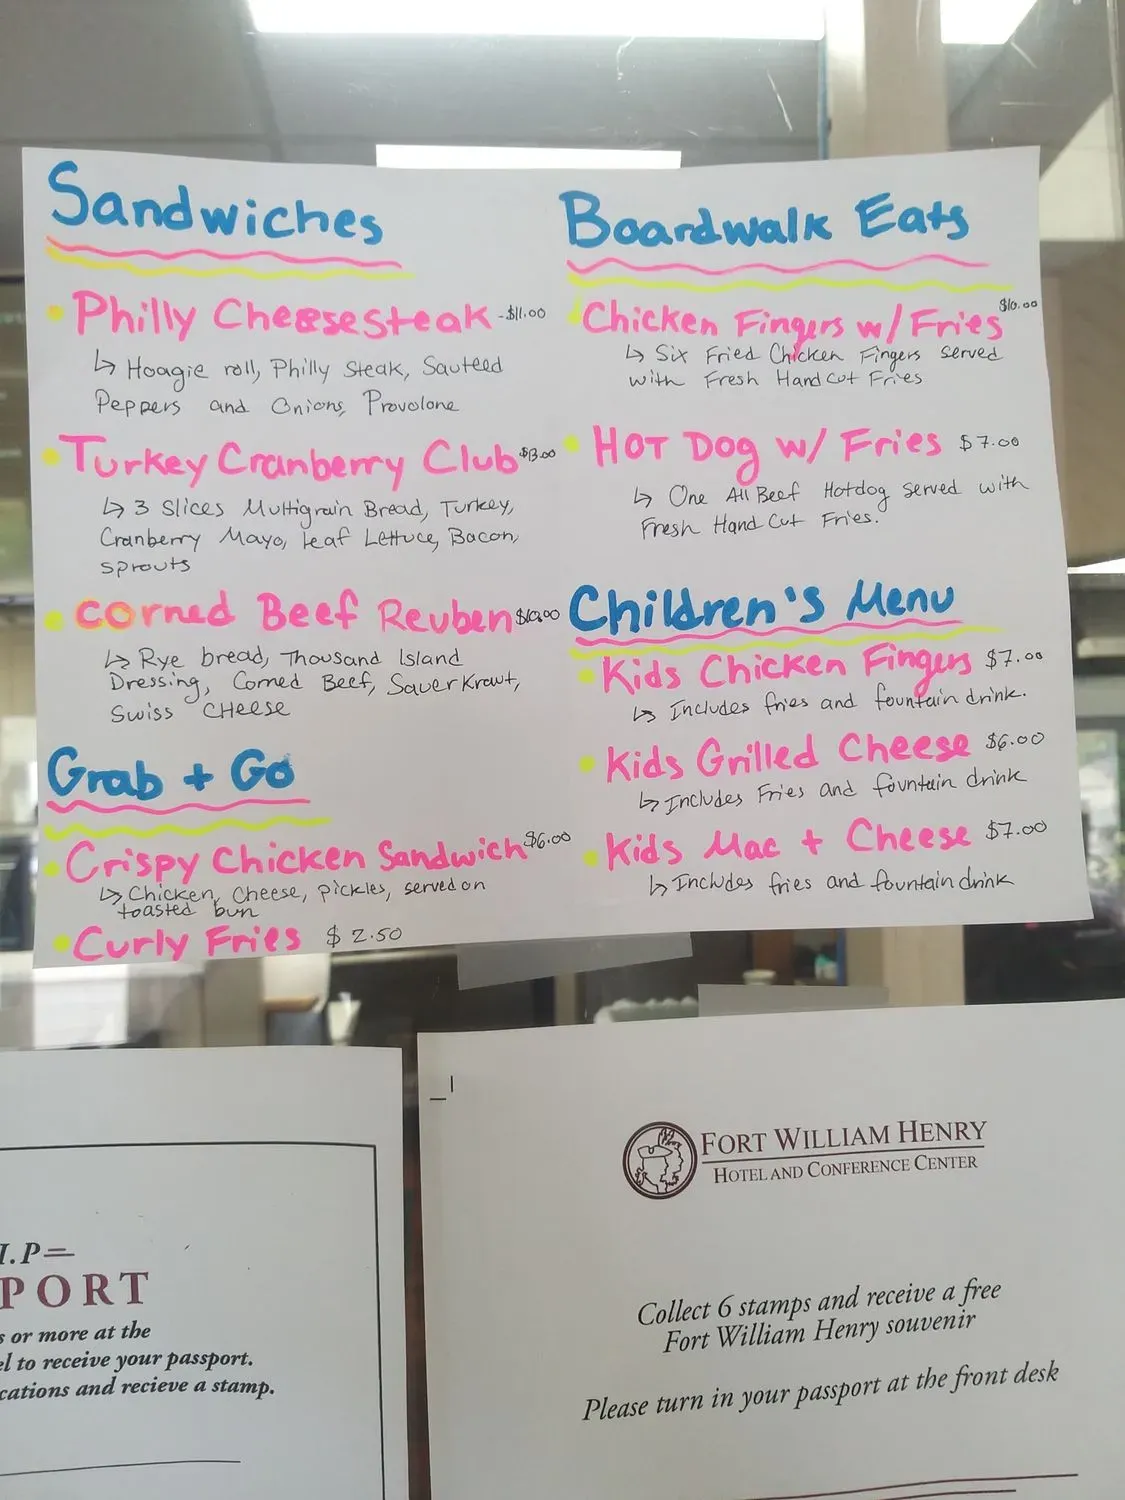 Sandwiches
Philly Cheesesteak -$11.00
↳ Hoagie roll, Philly Steak, Sauteed
Peppers and Onions, Provolone
Turkey Cranberry Club $13.00
↳ 3 Slices Multigrain Bread, Turkey,
Cranberry Mayo, Leaf Lettuce, Bacon,
sprouts
Corned Beef Reuben $10.00
↳ Rye bread, Thousand Island
Dressing, Corned Beef, Sauerkraut,
Swiss Cheese
Grab + Go
Crispy Chicken Sandwich $6.00
↳ Chicken, Cheese, pickles, served on
toasted bun
Curly Fries $2.50
Boardwalk Eats
Chicken Fingers w/ Fries $10.00
↳ Six Fried Chicken Fingers served
with Fresh Hand Cut Fries
HOT DOG w/ Fries $7.00
↳ One All Beef Hotdog served with
Fresh Hand Cut Fries.
Children's Menu
Kids Chicken Fingers $7.00
↳ Includes fries and fountain drink.
Kids Grilled Cheese $6.00
↳ Includes Fries and fountain drink
Kids Mac + Cheese $7.00
↳ Includes fries and fountain drink
I.P
PORT
s or more at the
el to receive your passport.
cations and recieve a stamp.
FORT WILLIAM HENRY
HOTEL AND CONFERENCE CENTER
Collect 6 stamps and receive a free
Fort William Henry souvenir
Please turn in your passport at the front desk